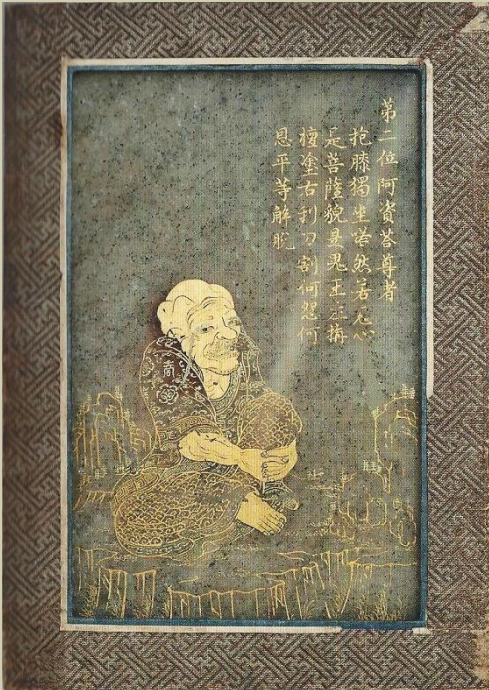 第二位阿資荅尊者
抱膝獨坐嗒然若忘心
是菩薩貌是鬼王左栴
檀塗右利刀割何怨何
恩平等解脫